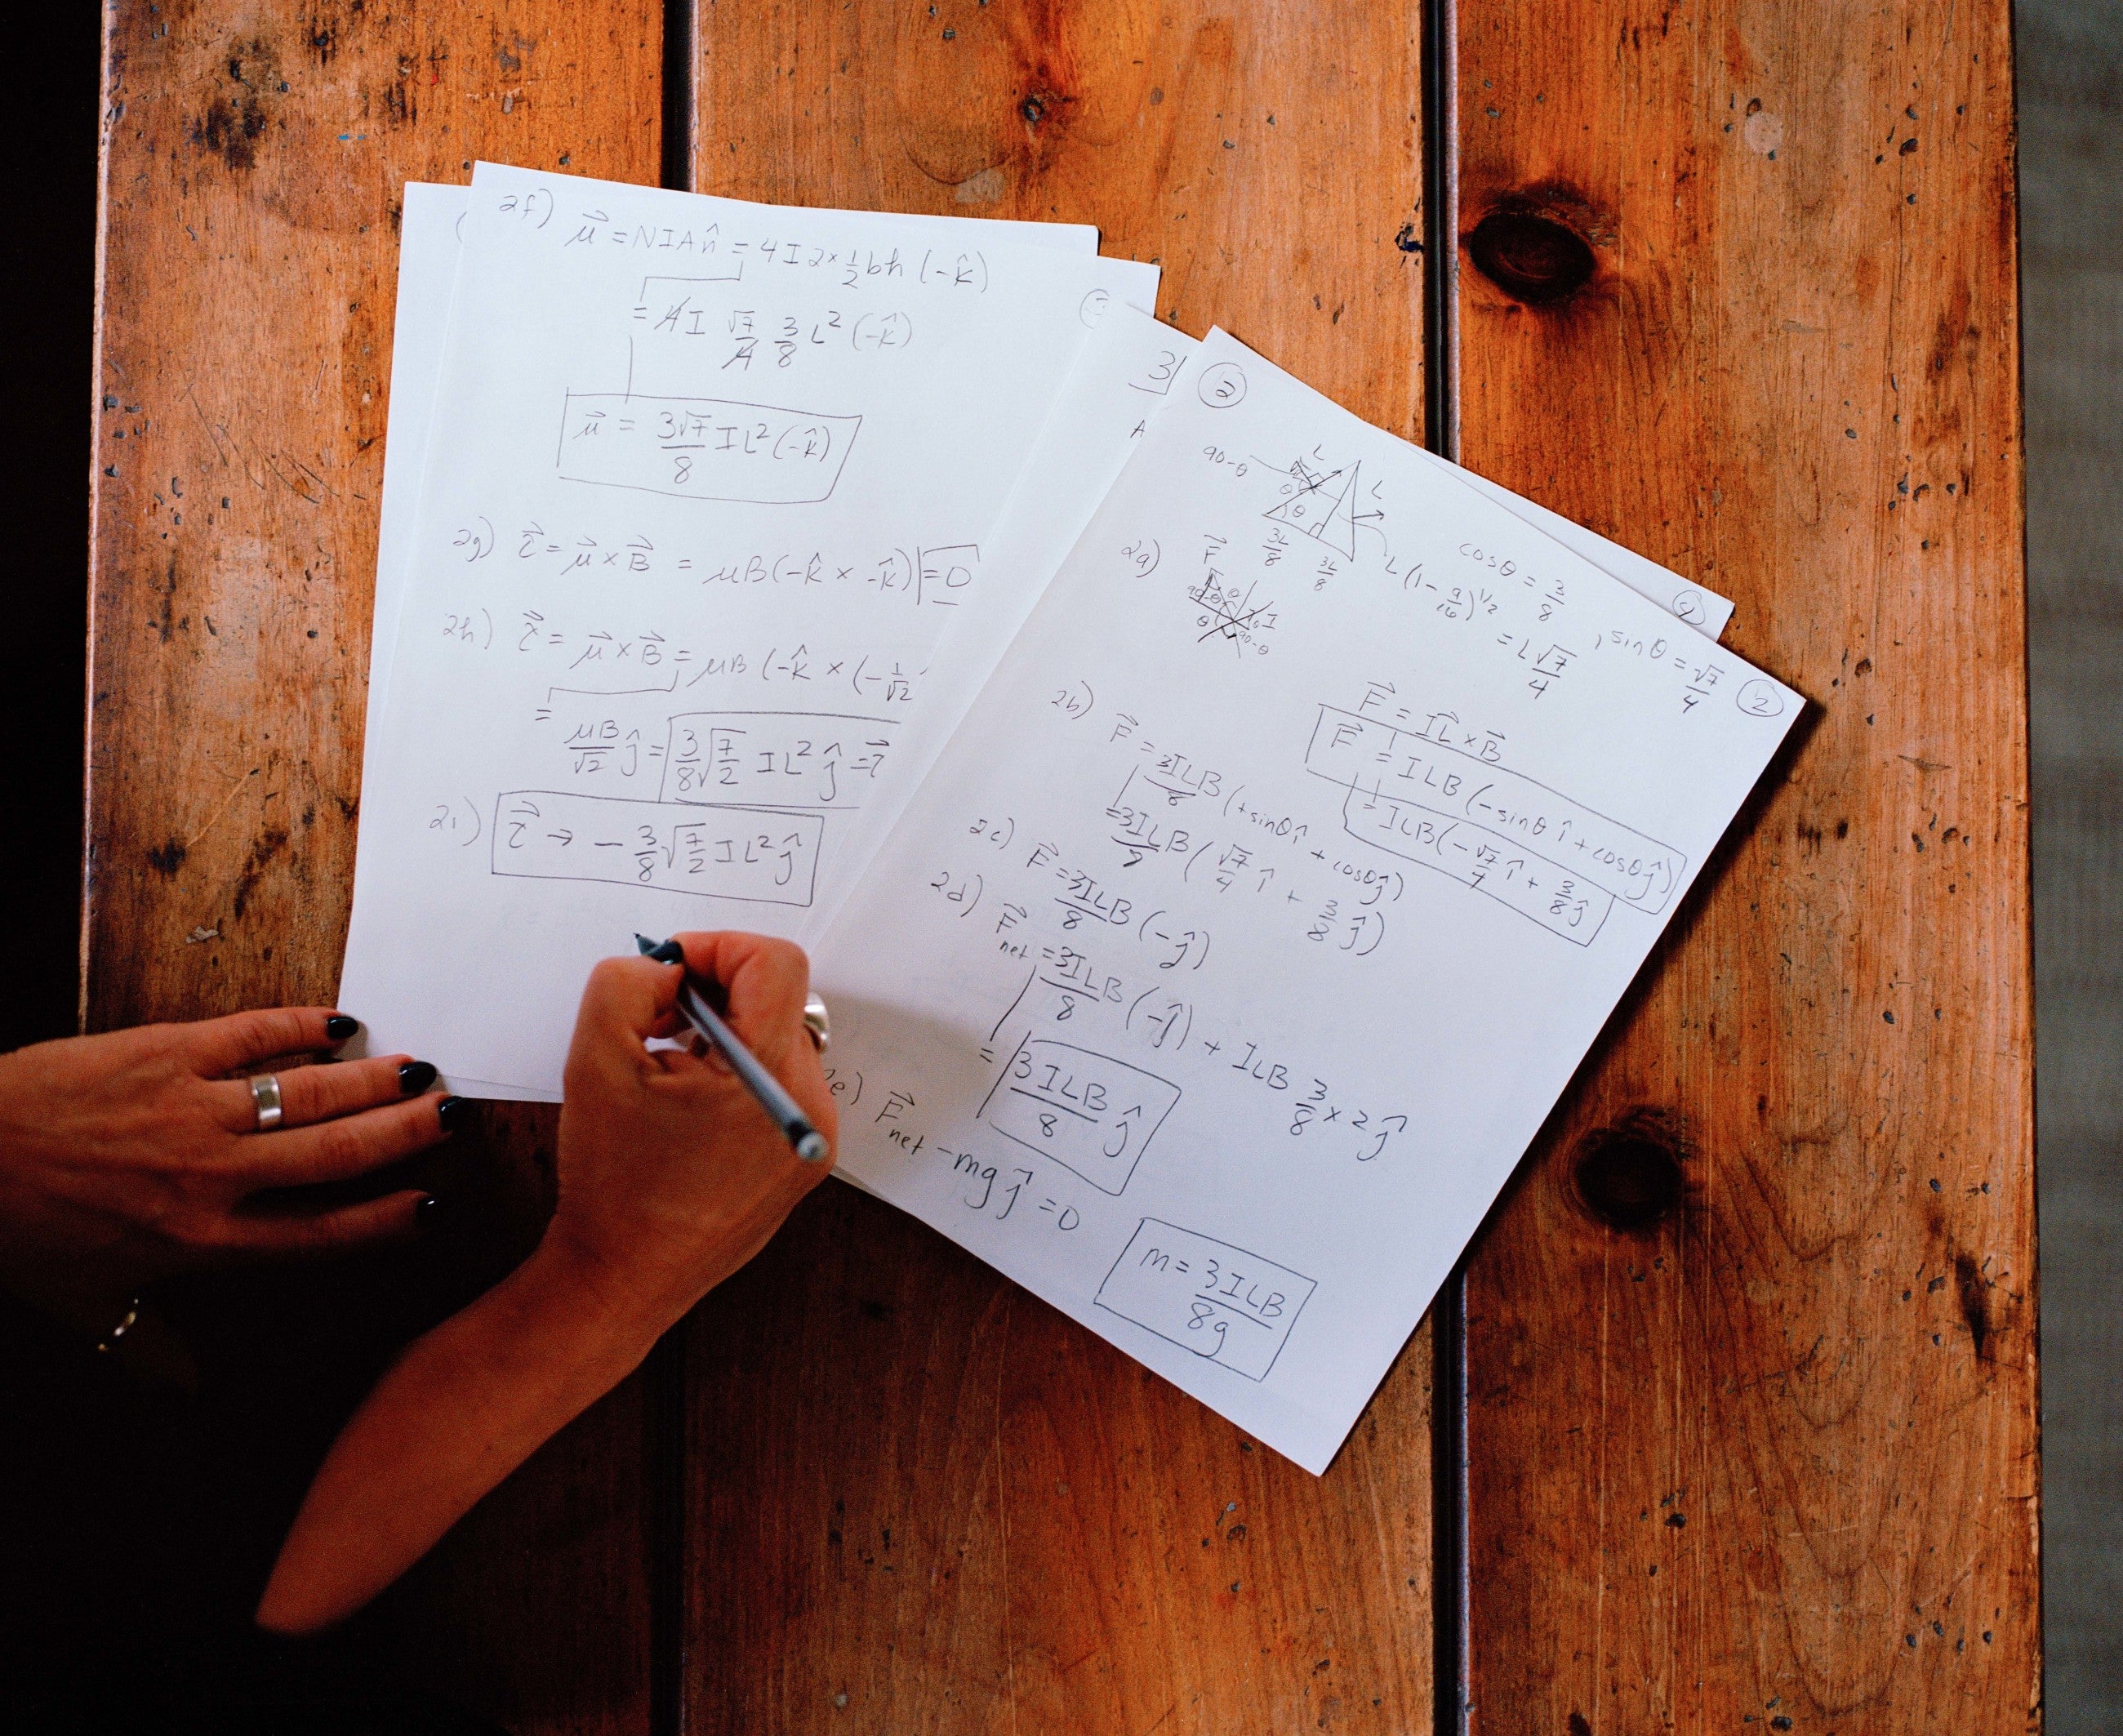 2f) μ⃗ = NIAn̂ = 4I2×½bh (-k̂)
= 4I √7/4 3/8 L² (-k̂)
μ⃗ = 3√7/8 IL² (-k̂)
2g) τ⃗ = μ⃗ × B⃗ = μB(-k̂ × -k̂) = 0
2h) τ⃗ = μ⃗ × B⃗ = μB (-k̂ × (-1/√2
= μB/√2 ĵ = 3/8 √7/2 IL² ĵ = τ⃗
2i) τ⃗ → - 3/8 √7/2 IL² ĵ
3
A
2
90-θ
L
L
θ
θ
3L/8
3L/8
L(1 - 9/16)^1/2 = L√7/4
cosθ = 3/8 , sinθ = √7/4
2
2a) F⃗
θ
90-θ
θ
I
90-θ
F⃗ = IL⃗ × B⃗
F⃗ = ILB (-sinθ î + cosθ ĵ)
= ILB (-√7/4 î + 3/8 ĵ
2b) F⃗ = 3ILB/8 (+sinθ î + cosθ ĵ)
= 3ILB/ (√7/4 î + 3/8 ĵ)
2c) F⃗ = 3ILB/8 (-ĵ)
2d) F⃗net = 3ILB/8 (-ĵ) + ILB 3/8 × 2 ĵ
= 3ILB/8 ĵ
e) F⃗net - mg ĵ = 0
m = 3ILB/8g